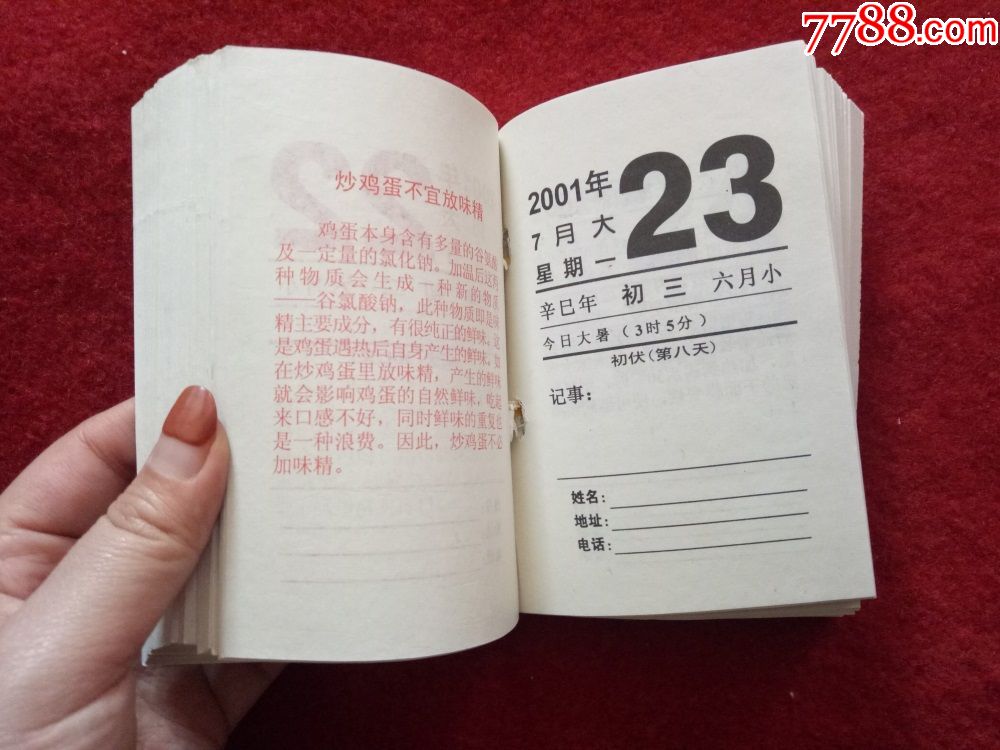 7788.com
炒鸡蛋不宜放味精
鸡蛋本身含有多量的谷氨酸
及一定量的氯化钠。加温后这两
种物质会生成一种新的物质
——谷氯酸钠，此种物质即是味
精主要成分，有很纯正的鲜味。这
是鸡蛋遇热后自身产生的鲜味。如
在炒鸡蛋里放味精，产生的鲜味
就会影响鸡蛋的自然鲜味，吃起
来口感不好，同时鲜味的重复也
是一种浪费。因此，炒鸡蛋不必
加味精。
2001年
7月大
星期一
23
辛巳年 初三 六月小
今日大暑（3时5分）
初伏（第八天）
记事：
姓名：
地址：
电话：